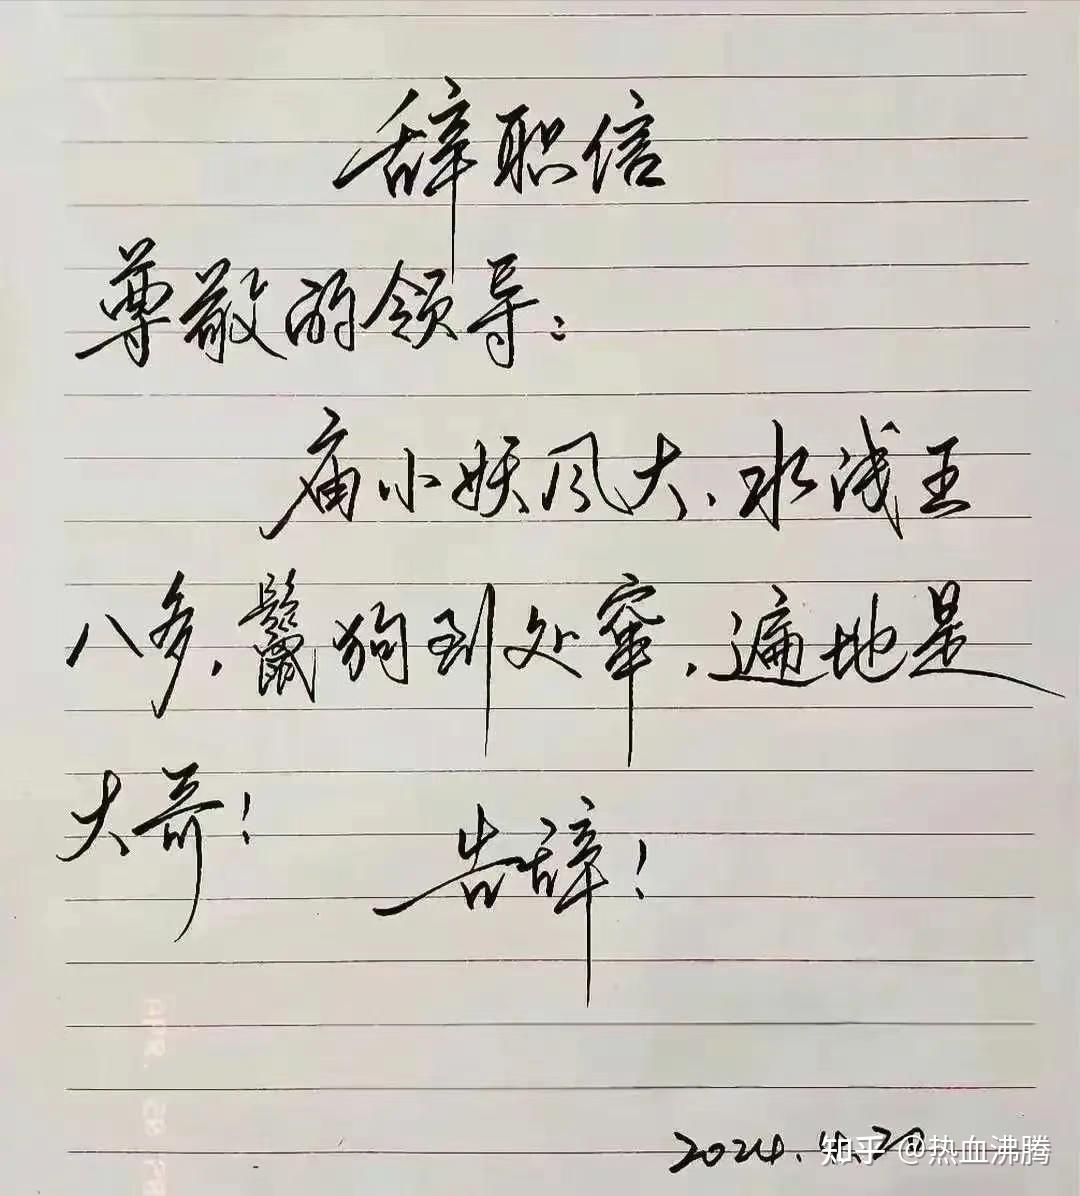 辞职信
尊敬的领导：
庙小妖风大、水浅王
八多，鬣狗到处窜，遍地是
大哥！
告辞！
2024.4.20
知乎 @热血沸腾